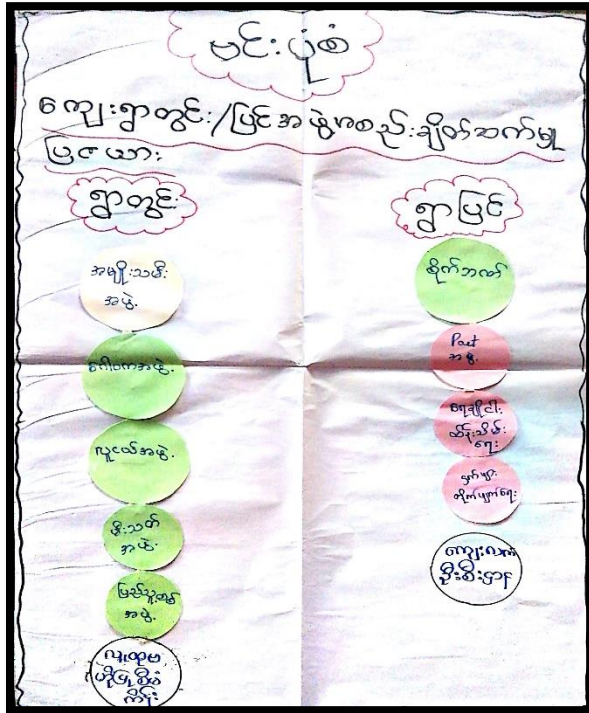 မင်းပုံစံ
ကျေးရွာတွင်း/ပြင်အဖွဲ့အစည်းချိတ်ဆက်မှု
ပြဇယား
ရွာတွင်း
အမျိုးသမီး
အဖွဲ့
ဂေါပကအဖွဲ့
လူငယ်အဖွဲ့
မီးသတ်
အဖွဲ့
ပြည်သူ့စစ်
အဖွဲ့
ရွာပြင်
စိုက်ဘဏ်
Pact
အဖွဲ့
ရေချိုငါး
ထိန်းသိမ်း
ရေး
ငှက်ဖျား
တိုက်ဖျက်ရေး
ကျေးလက်
ဦးစီးဌာန